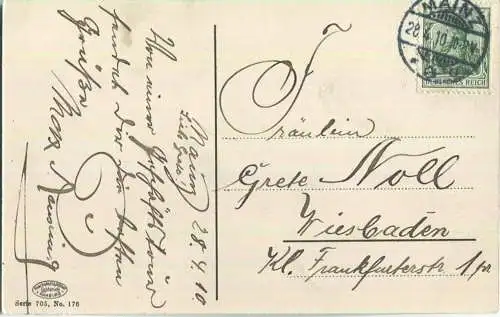 Mainz 28.4.10.
Lieb. Grete.
Von einer Geschäftstour
sendet Dir die besten
Grüße
Max
Fräulein
Grete Noll
Wiesbaden
Kl. Frankfurterstr 1 pr
MAINZ
28.4.10.
DEUTSCHES REICH
Serie 705, No. 176